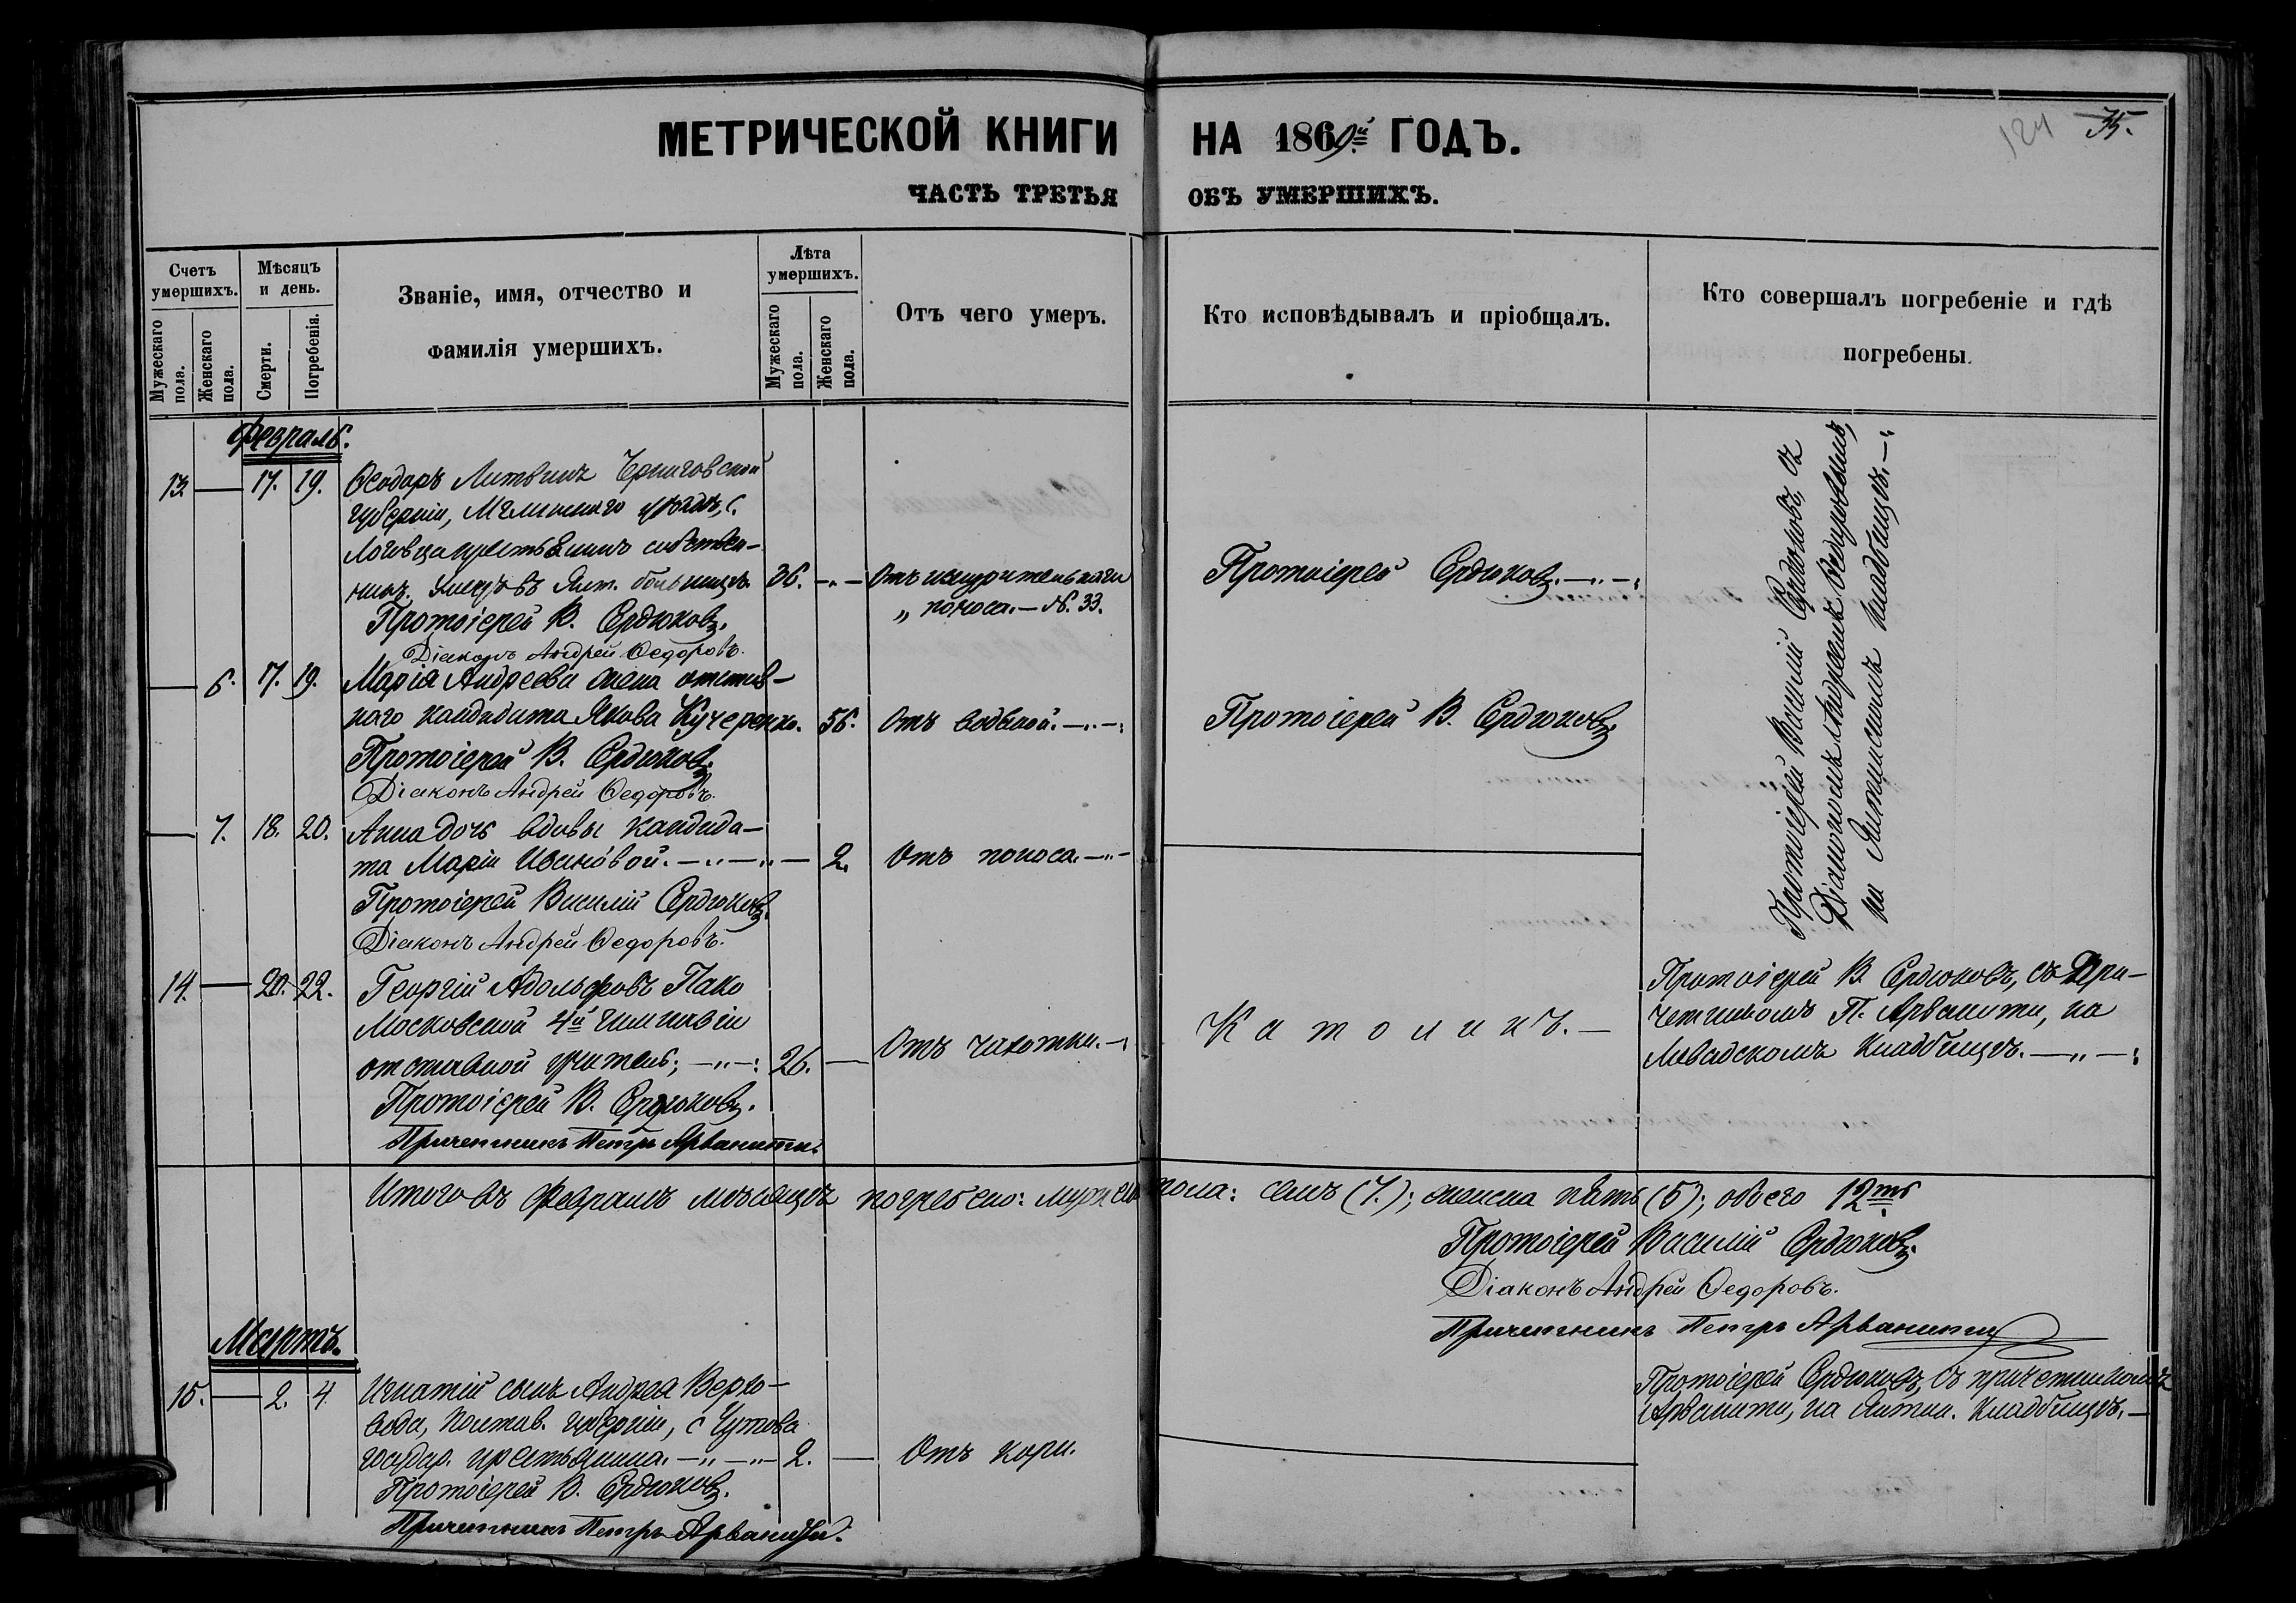 МЕТРИЧЕСКОЙ КНИГИ НА 1869й ГОДЪ.
124 35.
ЧАСТЬ ТРЕТЬЯ ОБЪ УМЕРШИХЪ.
Счетъ умершихъ.
Мужескаго пола.
Женскаго пола.
Мѣсяцъ и день.
Смерти.
Погребенія.
Званіе, имя, отчество и
фамилія умершихъ.
Лѣта умершихъ.
Мужескаго пола.
Женскаго пола.
Отъ чего умеръ.
Кто исповѣдывалъ и пріобщалъ.
Кто совершалъ погребеніе и гдѣ
погребены.
Февраль.
13. — 17. 19. Ѳеодоръ Литвинъ Черниговской
губерніи, Мглинскаго уѣзда, с.
крестьянинъ собствен-
никъ. Умеръ въ Ялт. больницѣ. 36. Отъ изнурительнаго
„ поноса. — №. 33.
Протоіерей Сердюковъ.
Протоіерей В. Сердюковъ.
Діаконъ Андрей Ѳедоровъ.
— 6. 17. 19. Марія Андреева жена отстав-
наго кандидата Якова Кучеренко. 56. Отъ водяной.
Протоіерей В. Сердюковъ.
Протоіерей В. Сердюковъ.
Діаконъ Андрей Ѳедоровъ.
— 7. 18. 20. Анна дочь вдовы кандида-
та Маріи Ивановой. — 2. Отъ поноса.
Протоіерей Василій Сердюковъ.
Діаконъ Андрей Ѳедоровъ.
Протоіерей Василій Сердюковъ, съ
Діакономъ Андреемъ Ѳедоровымъ,
на Ялтинскомъ кладбищѣ.
14. — 20. 22. Георгій Адольфовъ Пако
Московской 4й гимназіи
отставной учитель; 26. — Отъ чахотки.
Католикъ. —
Протоіерей В. Сердюковъ, съ При-
четникомъ П. Арванити, на
Ливадскомъ кладбищѣ.
Протоіерей В. Сердюковъ.
Причетникъ Петръ Арванити.
Итого въ Февралѣ мѣсяцѣ погребено: мужска пола: семь (7.); женска пять (5); обоего 12ть
Протоіерей Василій Сердюковъ.
Діаконъ Андрей Ѳедоровъ.
Причетникъ Петръ Арванити
Мартъ.
15. — 2. 4 Игнатій сынъ Андрея Верхо-
вода, Полтав. губерніи, с Чутова
государ. крестьянина. 2. — Отъ кори.
Протоіерей Сердюковъ, съ причетникомъ
Арванити, на Ялтин. кладбищѣ. —
Протоіерей В. Сердюковъ.
Причетникъ Петръ Арванити.